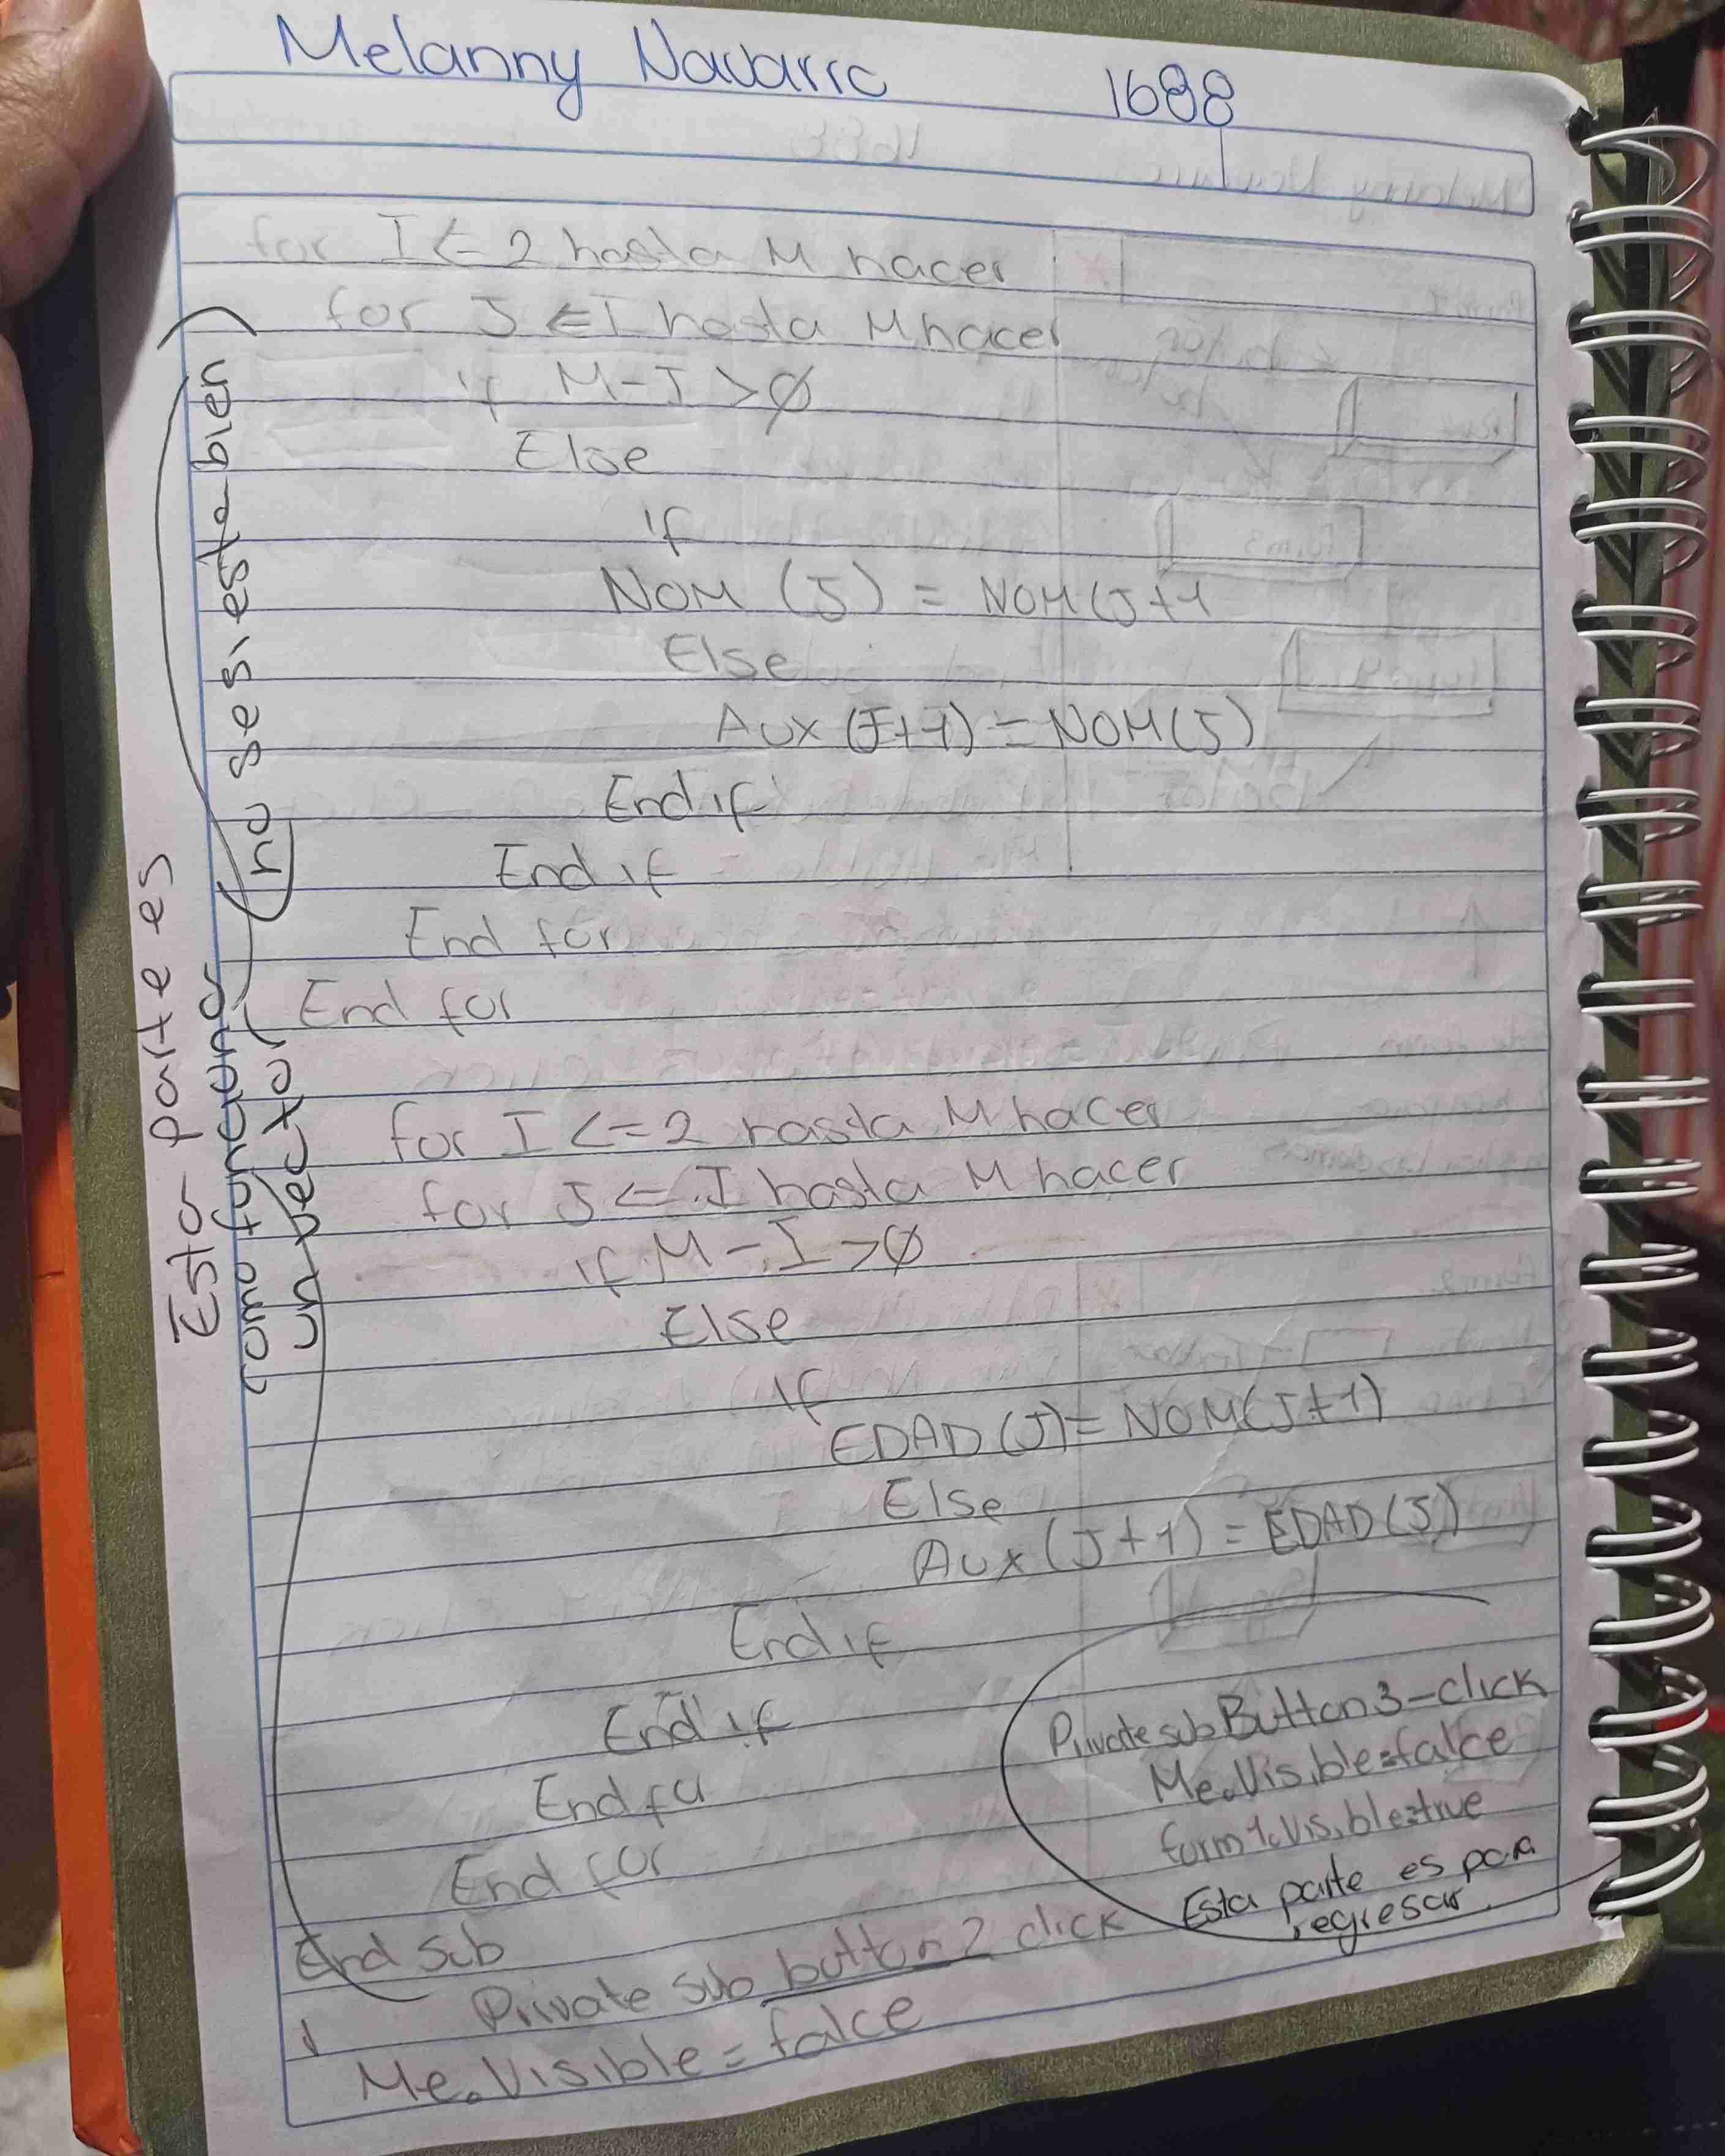 Melanny Navarro 1688
for I <= 2 hasta M hacer
for J <= I hasta M hacer
if M-J >Ø
Else
if
NOM (J) = NOM(J+1
Else
Aux (J+1) = NOM(J)
End if
End if
End for
End for
for I <= 2 hasta M hacer
for J <= I hasta M hacer
if M-I >Ø
Else
If
EDAD (J)= NOM(J+1)
Else
Aux (J+1) = EDAD (J)
End if
End if
End fu
End for
End sub
Private sub button 2 click
Me.Visible = falce
Private sub Button3-click
Me.Visible=falce
form1.Visible=true
Esta parte es para
regresar
Esta parte es
como funciona
un vector
(no se si este bien)